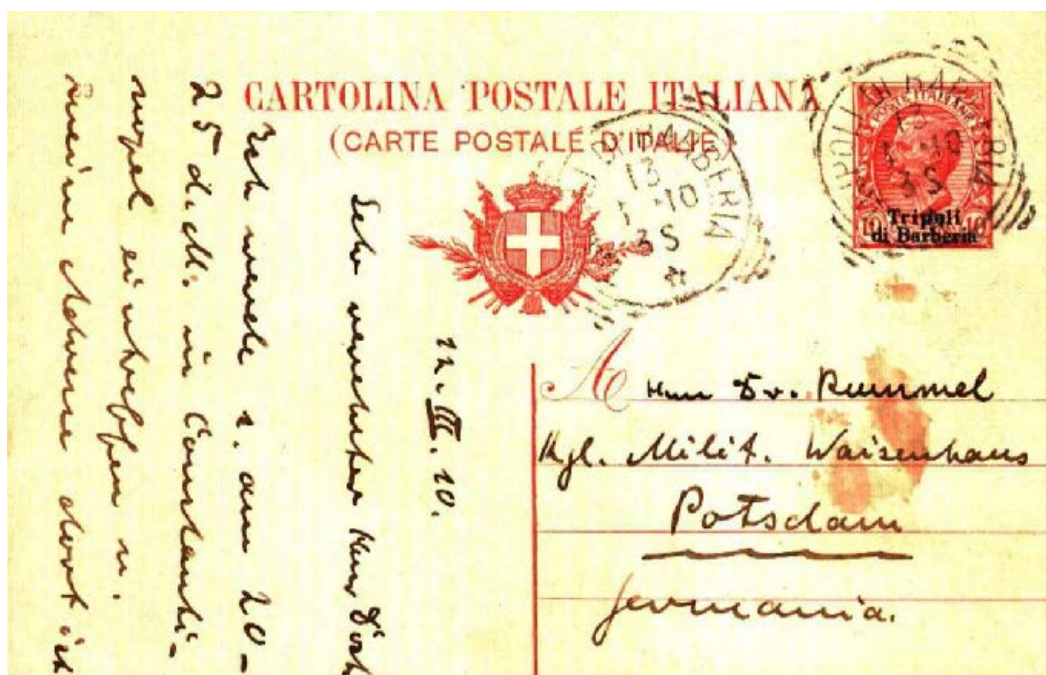 CARTOLINA POSTALE ITALIANA
(CARTE POSTALE D'ITALIE)
POSTE ITALIANE
10 10
Tripoli
di Barberia
TRIPOLI DI BARBERIA
13
3 -10
3 S
DI BARBERIA
13
3 -10
3 S
A Herrn Dr. Rummel
Kgl. Milit. Waisenhaus
Potsdam
Germania.
12. III. 10.
Sehr verehrter Herr
Ich werde z. am 20-
25 d. M. in Constanti-
nopel eintreffen u.
meine Adresse dort ist